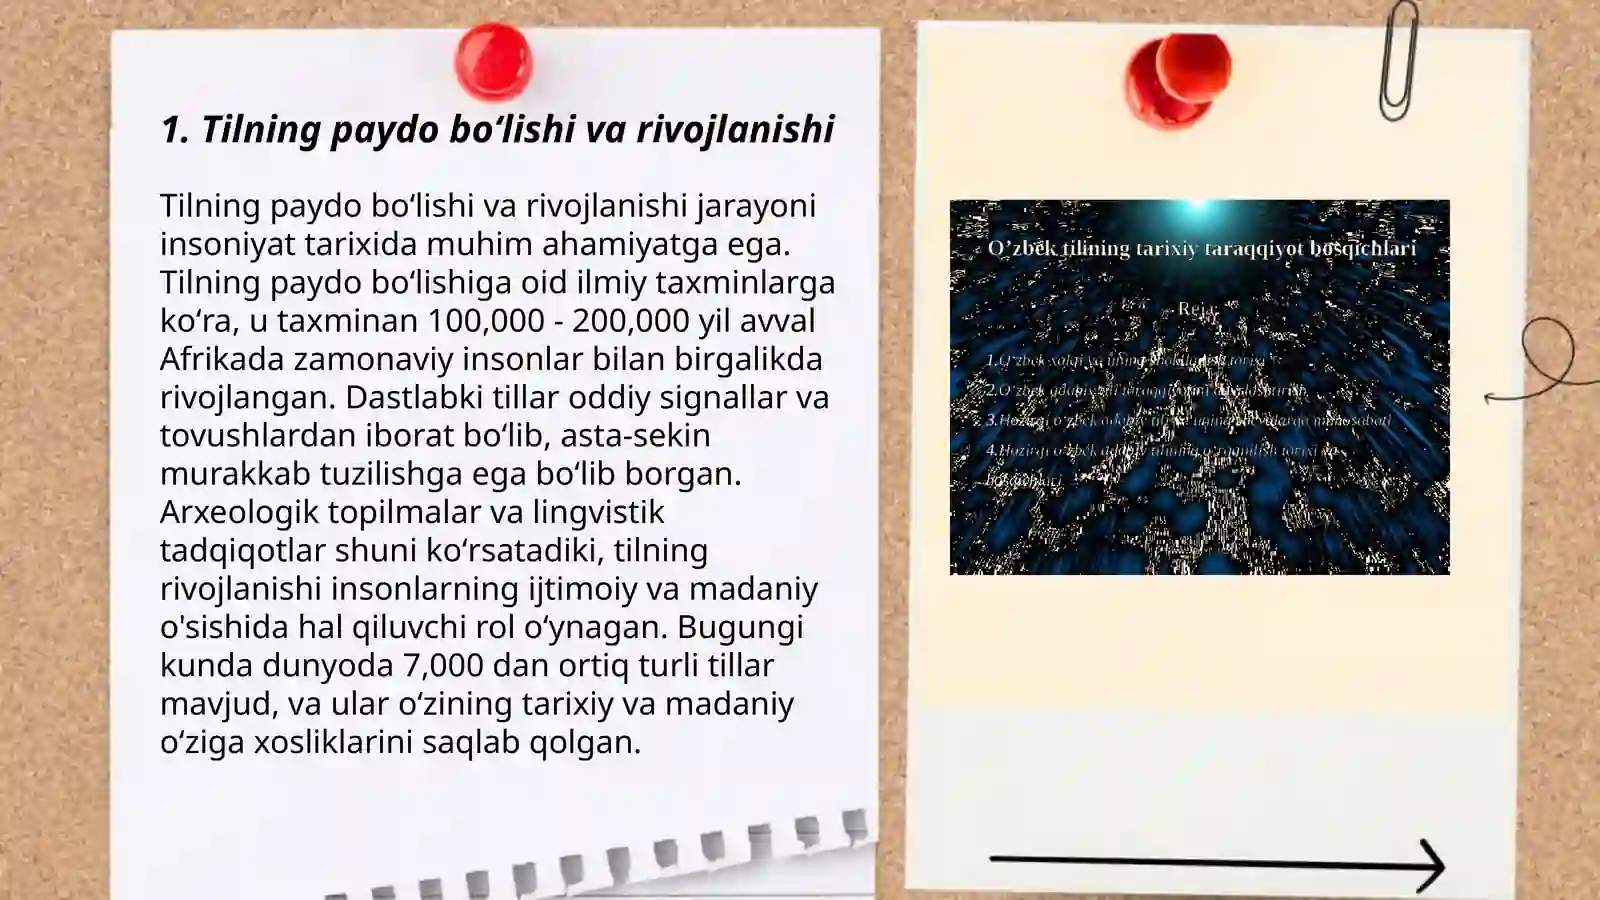 1. Tilning paydo bo‘lishi va rivojlanishi
Tilning paydo bo‘lishi va rivojlanishi jarayoni
insoniyat tarixida muhim ahamiyatga ega.
Tilning paydo bo‘lishiga oid ilmiy taxminlarga
ko‘ra, u taxminan 100,000 - 200,000 yil avval
Afrikada zamonaviy insonlar bilan birgalikda
rivojlangan. Dastlabki tillar oddiy signallar va
tovushlardan iborat bo‘lib, asta-sekin
murakkab tuzilishga ega bo‘lib borgan.
Arxeologik topilmalar va lingvistik
tadqiqotlar shuni ko‘rsatadiki, tilning
rivojlanishi insonlarning ijtimoiy va madaniy
o'sishida hal qiluvchi rol o‘ynagan. Bugungi
kunda dunyoda 7,000 dan ortiq turli tillar
mavjud, va ular o‘zining tarixiy va madaniy
o‘ziga xosliklarini saqlab qolgan.
O’zbek tilining tarixiy taraqqiyot bosqichlari
1.O‘zbek xalqi va uning shakllanish tarixi
2.O‘zbek adabiy tili
3.Hozirgi o‘zbek adabiy tili va uning shevalarga munosabati
4.Hozirgi o‘zbek adabiy tilining o‘rganilish tarixi va
bosqichlari